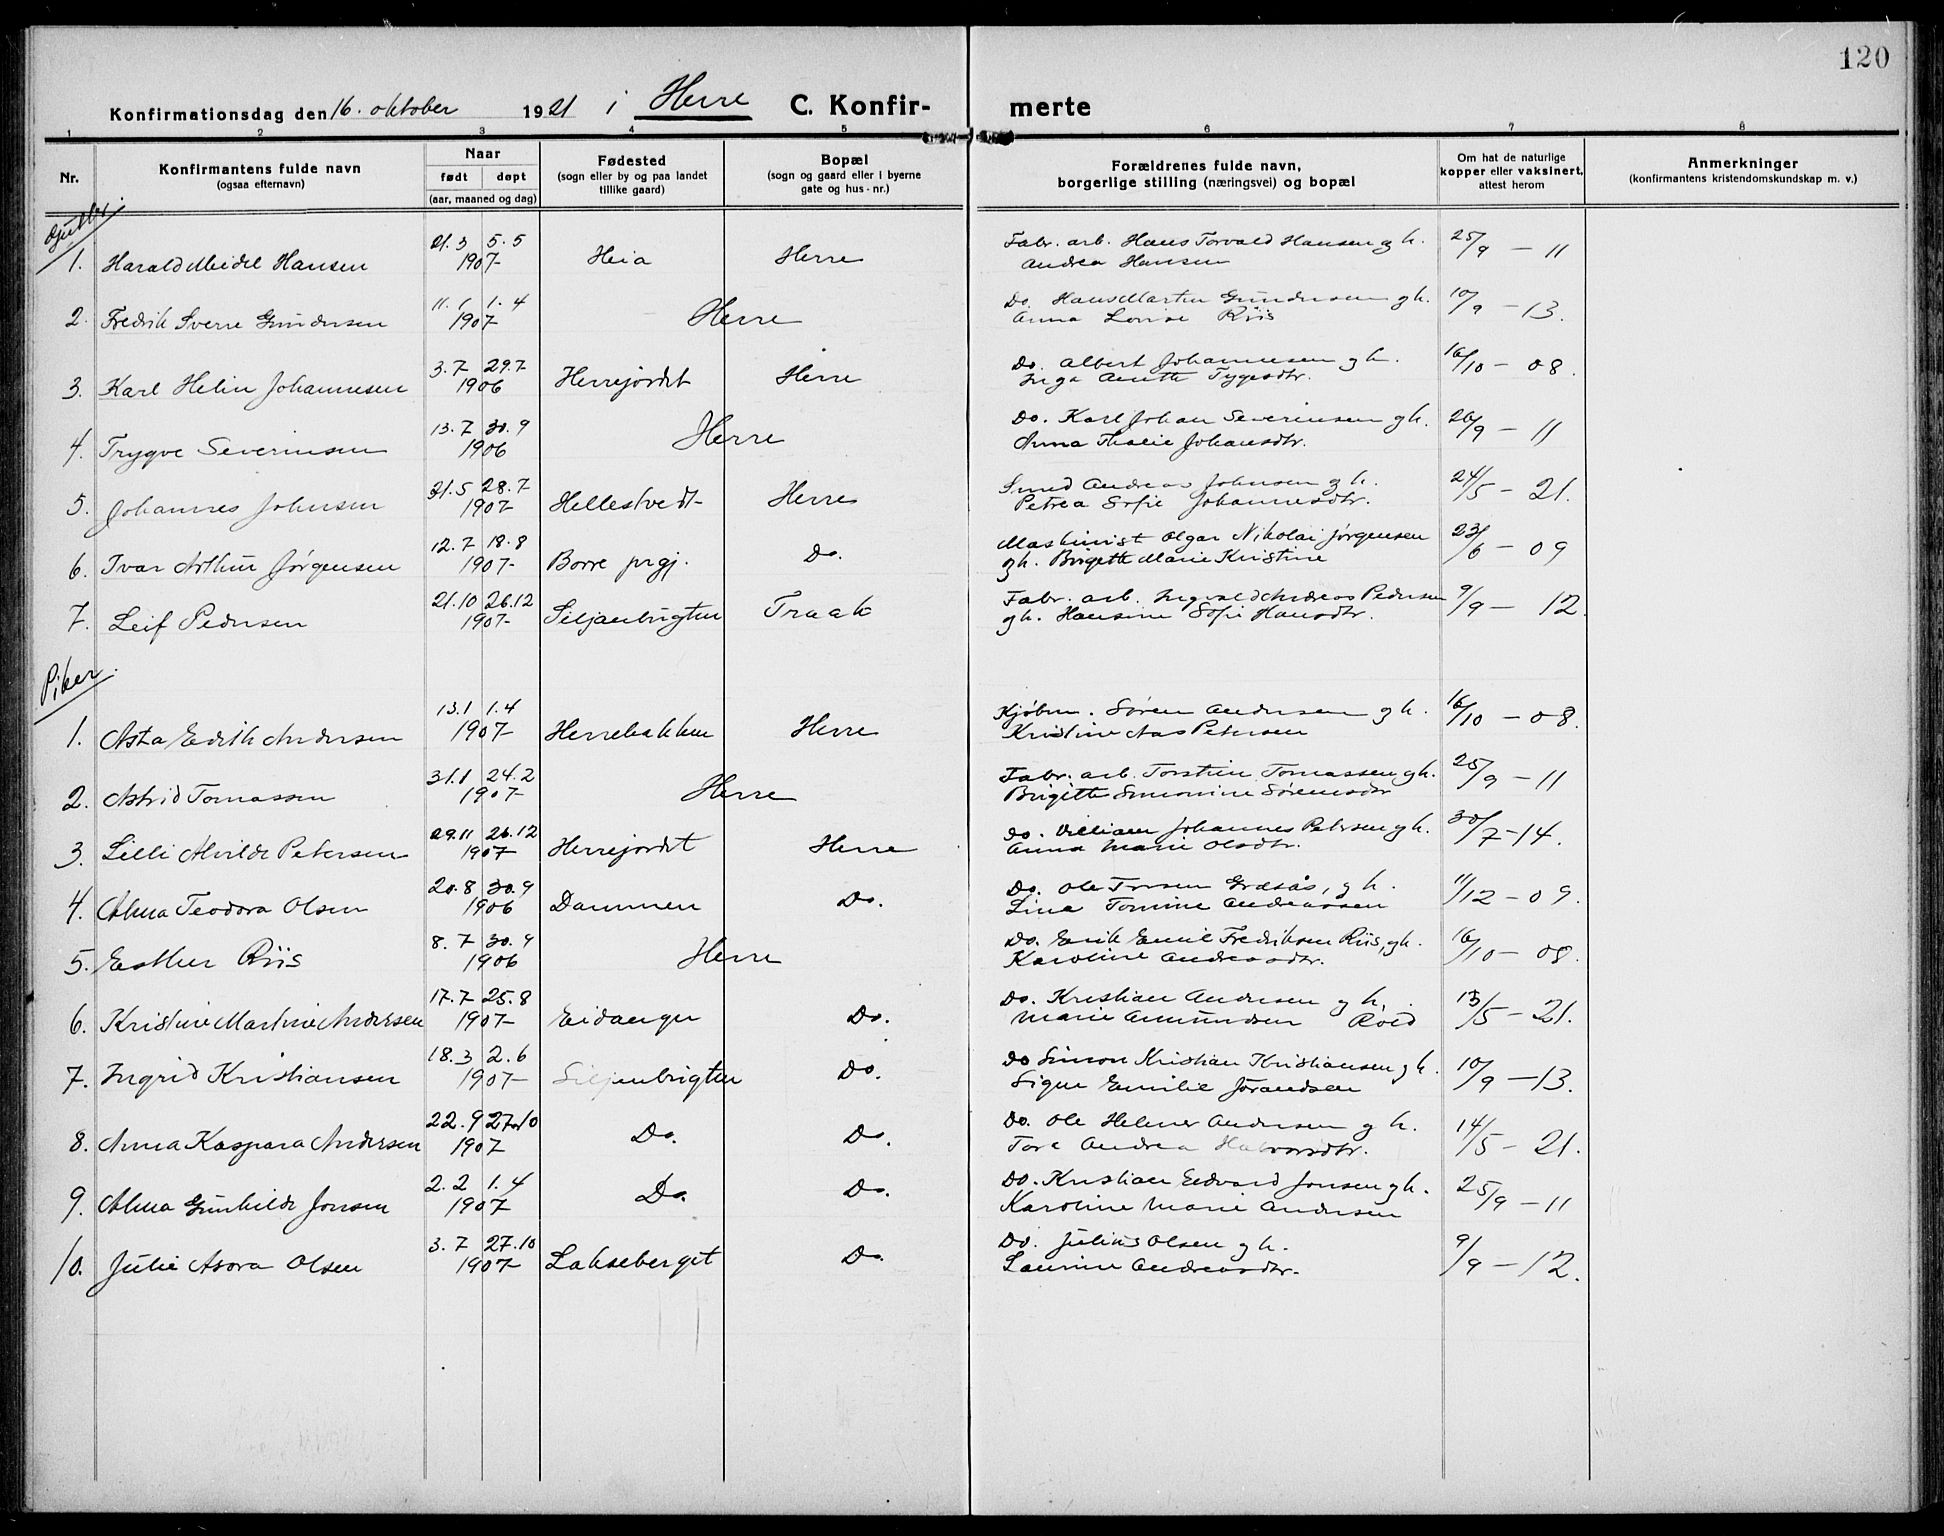 120
Konfirmationsdag den 16. oktober 1921 i Herre C. Konfir- merte
1 2 3 4 5 6 7 8
Nr. Konfirmantens fulde navn (ogsaa efternavn) Naar født døpt (aar, maaned og dag) Fødested (sogn eller by og paa landet tillike gaard) Bopæl (sogn og gaard eller i byerne gate og hus-nr.) Forældrenes fulde navn, borgerlige stilling (næringsvei) og bopæl Om hat de naturlige kopper eller vaksinert, attest herom Anmerkninger (konfirmantens kristendomskundskap m. v.)
Gutter.
1. Harald Meidel Hansen 21.3 5.5 1907 Heia Herre Fabr. arb. Hans Torvald Hansen og h. Andrea Hansen 25/9 – 11
2. Fredrik Sverre Gundersen 11.1 1.4 1907 Herre Do. Hans Martin Gundersen og h. Anna Lovise Riis 10/9 – 13.
3. Karl Helin Johannesen 3.7 29.7 1906 Herrejordet Herre Do. Albert Johannesen og h. Inga Anette Tygesdtr. 16/10 – 08.
4. Trygve Severinsen 13.7 30.9 1906 Herre Do. Karl Johan Severinsen og h. Anna Thalie Johansdtr. 26/9 – 11
5. Johannes Johnsen 31.5 28.7 1907 Hellestvedt Herre Smed Andreas Johnsen og h. Petrea Sofie Johannesdtr. 24/5 – 21.
6. Ivar Arthur Jørgensen 12.7 18.8 1907 Borre prgj. Do. Maskinist Olgar Nikolai Jørgensen og h. Birgitte Marie Kristine 23/6 – 09
7. Leif Pedersen 21.10 26.12 1907 Siljanbrigten Traak Fabr. arb. Ingvald Andreas Pedersen og h. Hansine Sofie Hansdtr. 9/9 – 12.
Piker.
1. Asta Edith Andersen 13.1 1.4 1907 Herrebakken Herre Kjøbm. Søren Andersen og h. Kristine Aas Petersen 16/10 – 08.
2. Astrid Tomassen 31.1 24.2 1907 Herre Fabr. arb. Torstein Tomassen og h. Birgitte Simonine Sørensdtr 25/9 – 11
3. Lilli Alvilde Petersen 29.11 26.12 1907 Herrejordet Herre Do. Villiam Johannes Petersen og h. Anna Marie Olsdtr. 30/7 – 14.
4. Alma Teodora Olsen 20.8 30.9 1906 Dammen Do. Do. Ole Torsen Græsås, og h. Lina Tomine Andreassen 11/12 – 09.
5. Esther Riis 8.7 30.9 1906 Herre Do. Erik Emil Fredriksen Riis, og h. Karoline Andreasdtr. 16/10 – 08.
6. Kristine Martine Andersen 17.7 25.8 1907 Eidanger Do. Do. Kristian Andersen og h. Marie Amundsen Røed 13/5 – 21.
7. Ingrid Kristiansen 18.3 2.6 1907 Siljenbrigten Do. Do Simon Kristian Kristiansen og h. Signe Emilie Jørandsen 10/9 – 13.
8. Anna Kaspara Andersen 22.9 27.10 1907 Do. Do. Do. Ole Helmer Andersen og h. Tora Andrea Halvorsdtr. 14/5 – 21.
9. Alma Gunhilde Jonsen 2.2 1.4 1907 Do. Do. Do. Kristian Edvard Jonsen og h. Karoline Marie Andersen 25/9 – 11
10. Julie Asora Olsen 3.7 27.10 1907 Lakseberget Do. Do. Julius Olsen og h. Laurine Andreasdtr. 9/9 – 12.